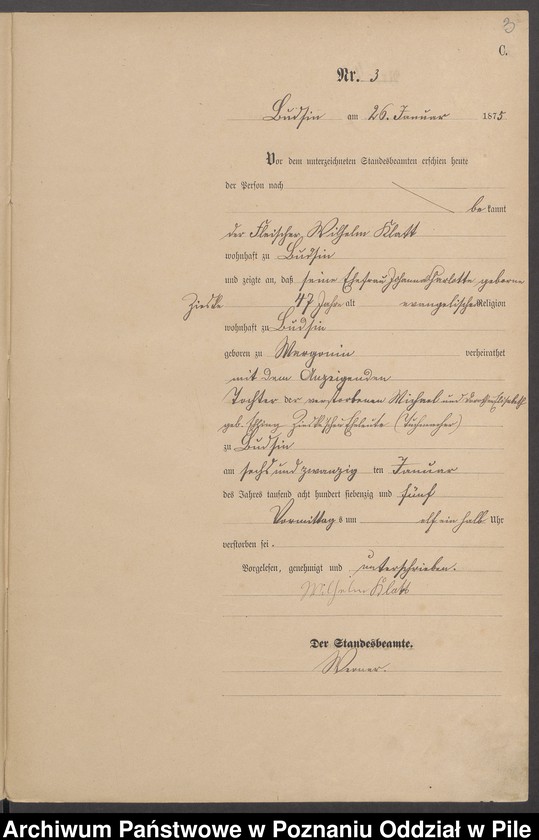 3
C.
Nr. 3
Budsin am 26. Januar 1875
Vor dem unterzeichneten Standesbeamten erschien heute
der Person nach
bekannt
der Fleischer Wilhelm Klatt
wohnhaft zu Budsin
und zeigte an, daß seine Ehefrau Johanna Charlotte geborne
Zieske 47 Jahre alt evangelischer Religion
wohnhaft zu Budsin
geboren zu Margonin verheirathet
mit dem Anzeigenden
Tochter der verstorbenen Michael und
geb. Zieskeschen Eheleute (Tuchmacher)
zu Budsin
am sechs und zwanzig ten Januar
des Jahres tausend acht hundert siebenzig und fünf
Vormittags um elf ein halb Uhr
verstorben sei.
Vorgelesen, genehmigt und unterschrieben.
Wilhelm Klatt
Der Standesbeamte.
Werner.
Archiwum Państwowe w Poznaniu Oddział w Pile